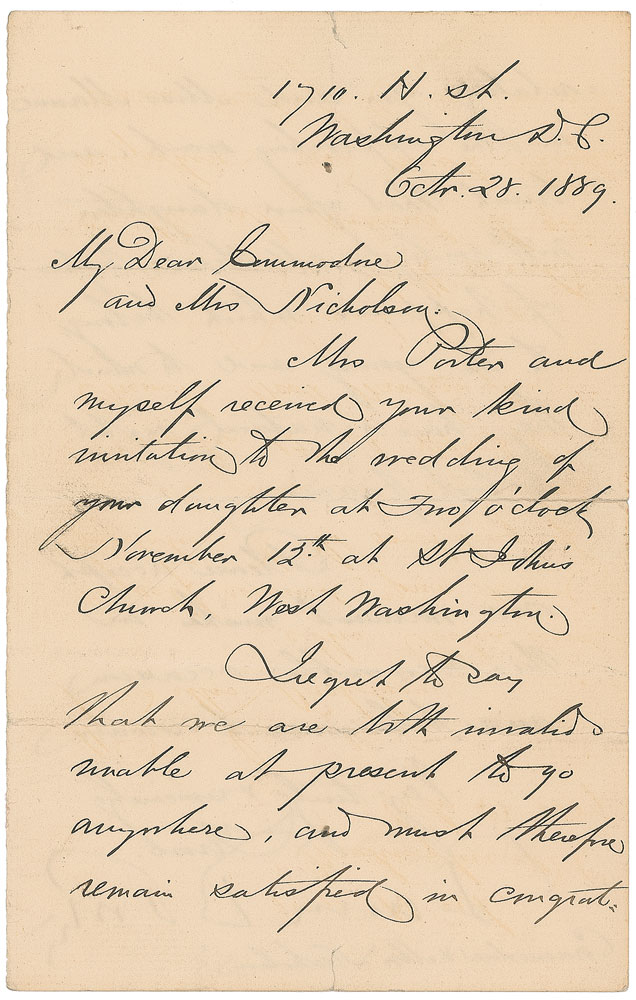 1710. H. st.
Washington D. C.
Octr. 28. 1889.
My Dear Commodore
and Mrs Nicholson.
Mrs Porter and
myself received your kind
invitation to the wedding of
your daughter at Two o'clock
November 12th at St John's
Church, West Washington.
I regret to say
that we are both invalids
unable at present to go
anywhere, and must therefore
remain satisfied in congrat-